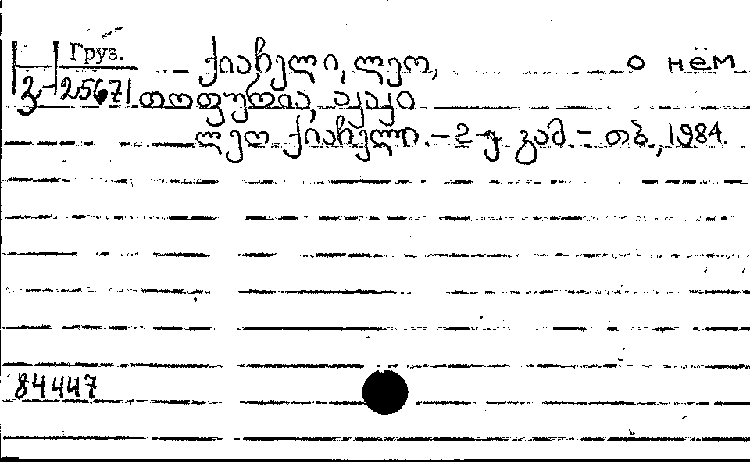 Груз.
ქიაჩელი, ლეო, о нём
2-25671 თოფურია, აკაკი
ლეო ქიაჩელი. - 2-ე გამ. - თბ., 1984.
84447